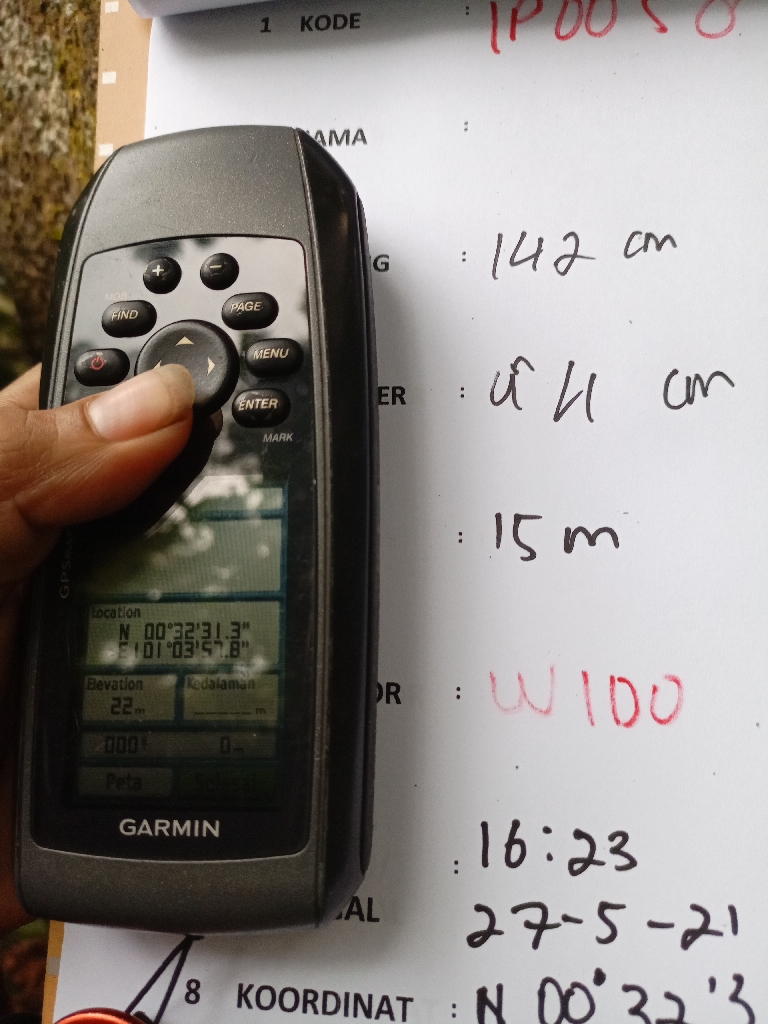 1 KODE : IP0050
AMA :
G : 142 cm
ER : cm
: 15 m
OR : WIDO
: 16:23
AL 27-5-21
8 KOORDINAT : N 00°32'3
+ -
MOB
FIND PAGE
MENU
ENTER
MARK
Location
N 00°32'31.3"
E101°03'57.8"
Elevation Kedalaman
22m ______m
000° 0m
Peta Selesai
GARMIN